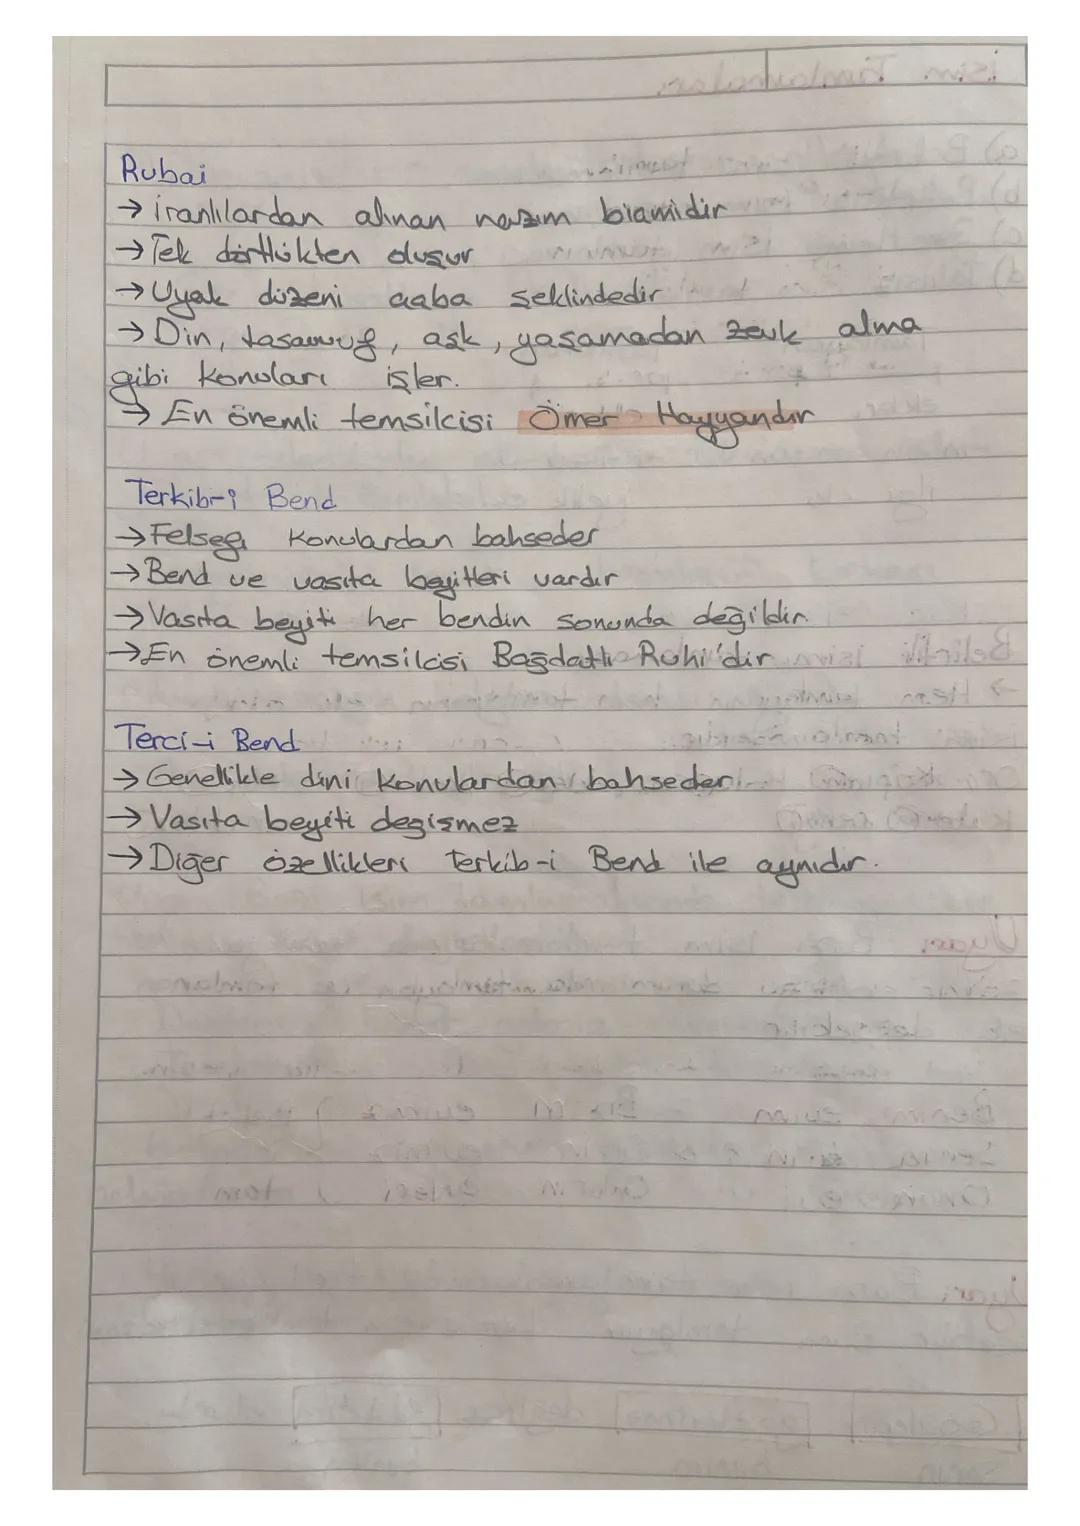 Rubai
→ iranlılardan alınan nazım biamidir
→ Tek dörtlükten oluşur
→ Uyak düzeni aaba şeklindedir
→ Din, tasavvuf, aşk, yaşamadan zevk alma
gibi konuları işler.
→ En önemli temsilcisi Ömer Hayyandır
Terkib-i Bend
→ Felsefi konulardan bahseder
→ Bend ve vasıta beyitleri vardır
→ Vasıta beyiti her bendin sonunda değildir.
→ En önemli temsilcisi Bağdatlı Ruhi'dir
Terci-i Bend
→ Genellikle dini konulardan bahseder
→ Vasıta beyiti degişmez
→ Diğer özellikleri Terkib-i Bend ile aynıdır.